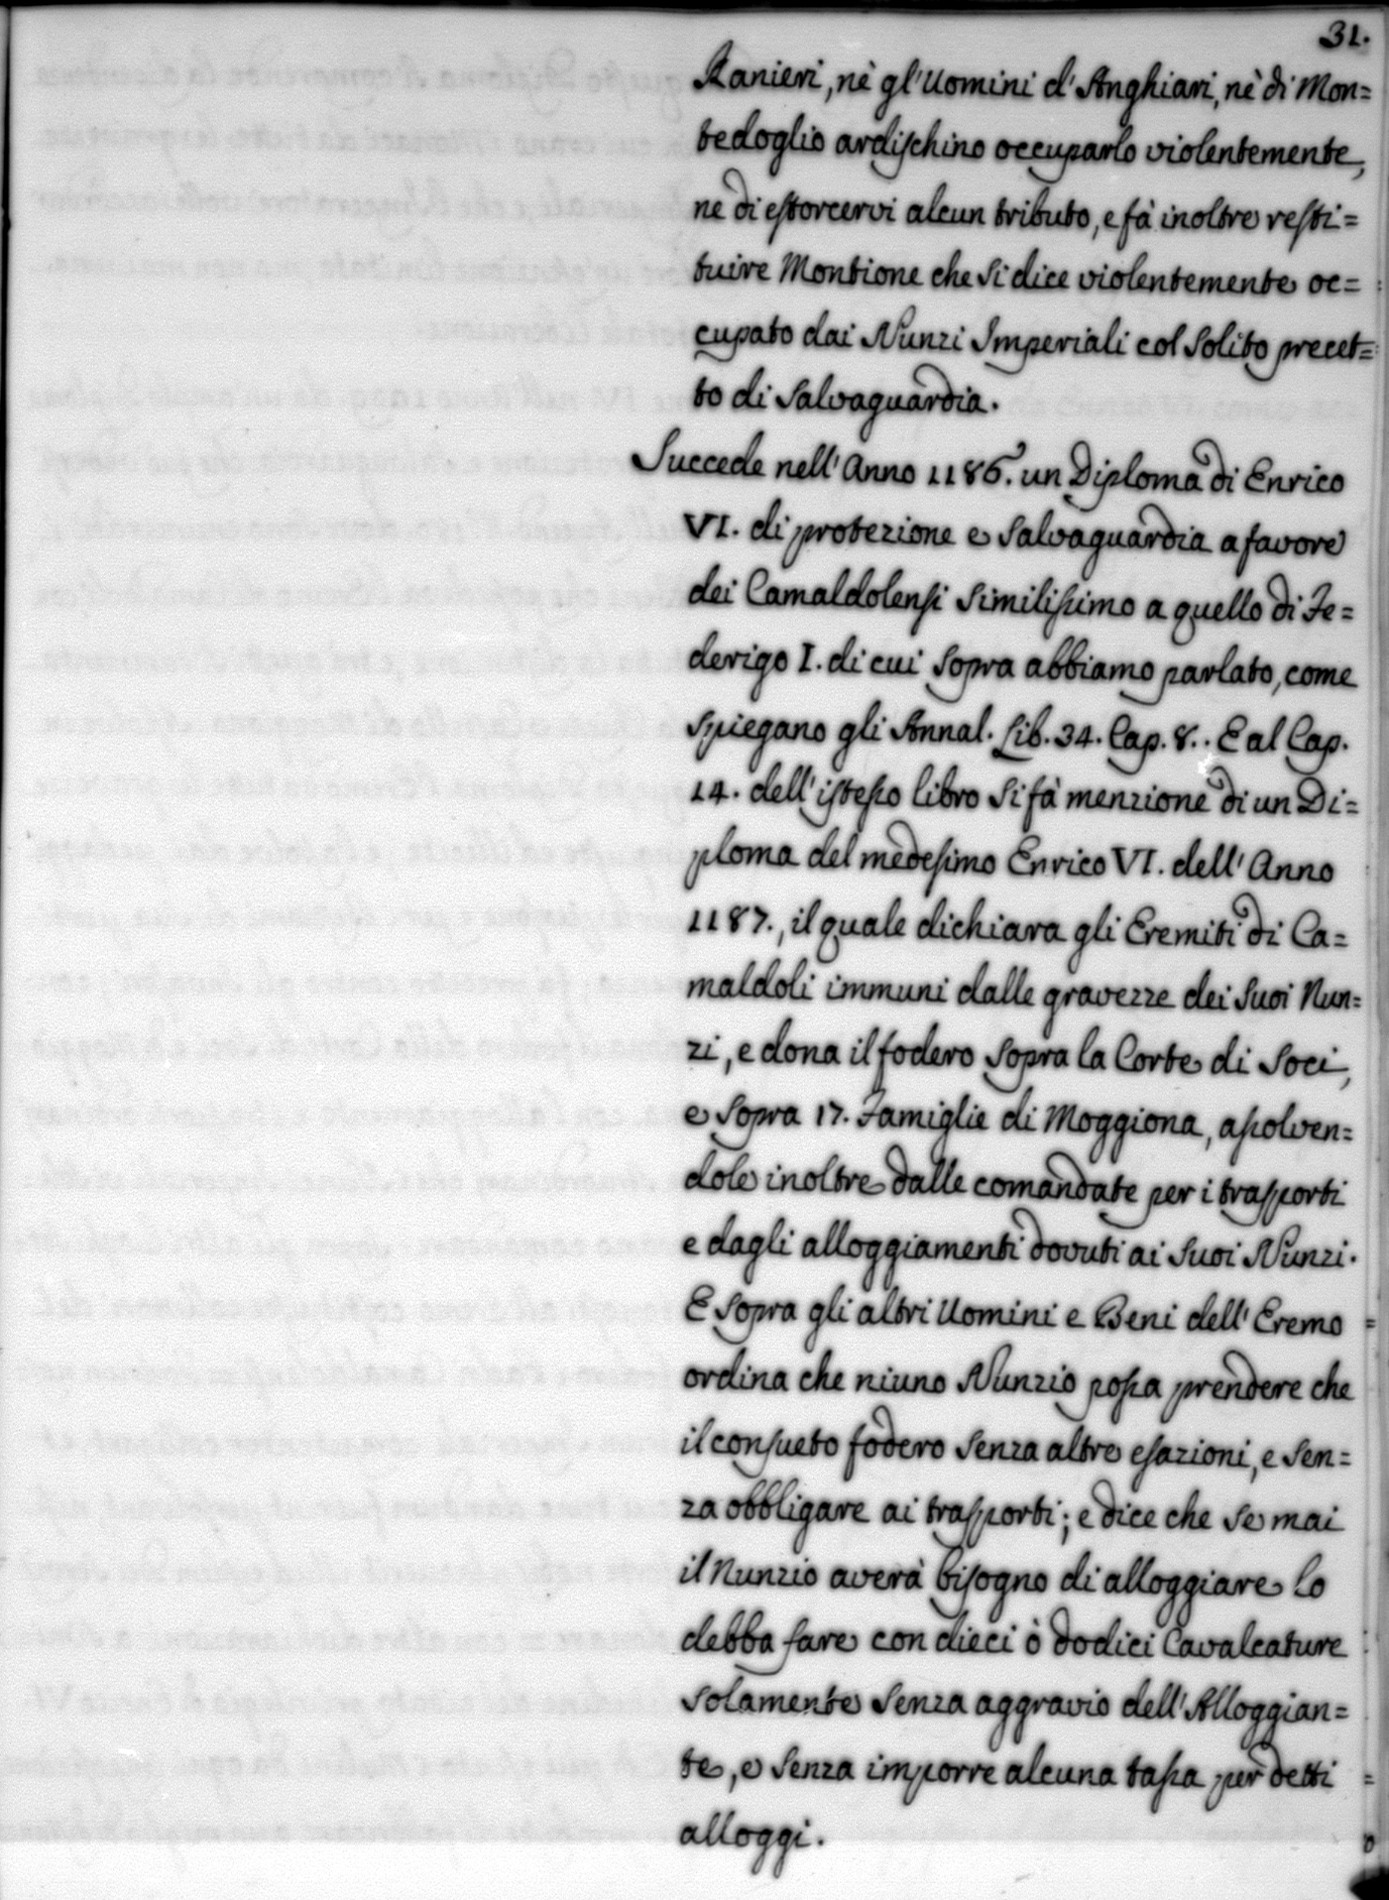 31.
Ranieri, nè gl'Uomini d'Anghiari, nè di Mon=
tedoglio ardischino occuparlo violentemente,
ne di estorcervi alcun tributo, e fà inoltre resti=
tuire Montione che si dice violentemente oc=
cupato dai Nunzi Imperiali col solito precet=
to di salvaguardia.
Succede nell'Anno 1186. un Diploma di Enrico
VI. di protezione e salvaguardia a favore
dei Camaldolensi similissimo a quello di Fe=
derigo I. di cui sopra abbiamo parlato, come
spiegano gli Annal. Lib. 34. Cap. 8.. E al Cap.
14. dell'istesso libro si fà menzione di un Di=
ploma del medesimo Enrico VI. dell'Anno
1187., il quale dichiara gli Eremiti di Ca=
maldoli immuni dalle gravezze dei suoi Nun=
zi, e dona il fodero sopra la Corte di Soci,
e sopra 17. Famiglie di Moggiona, assolven=
dole inoltre dalle comandate per i trasporti
e dagli alloggiamenti dovuti ai suoi Nunzi.
E sopra gli altri Uomini e Beni dell'Eremo
ordina che niuno Nunzio possa prendere che
il consueto fodero senza altre esazioni, e sen=
za obbligare ai trasporti; e dice che se mai
il Nunzio averà bisogno di alloggiare lo
debba fare con dieci ò dodici Cavalcature
solamente senza aggravio dell'Alloggian=
te, e senza imporre alcuna tassa per detti
alloggi.